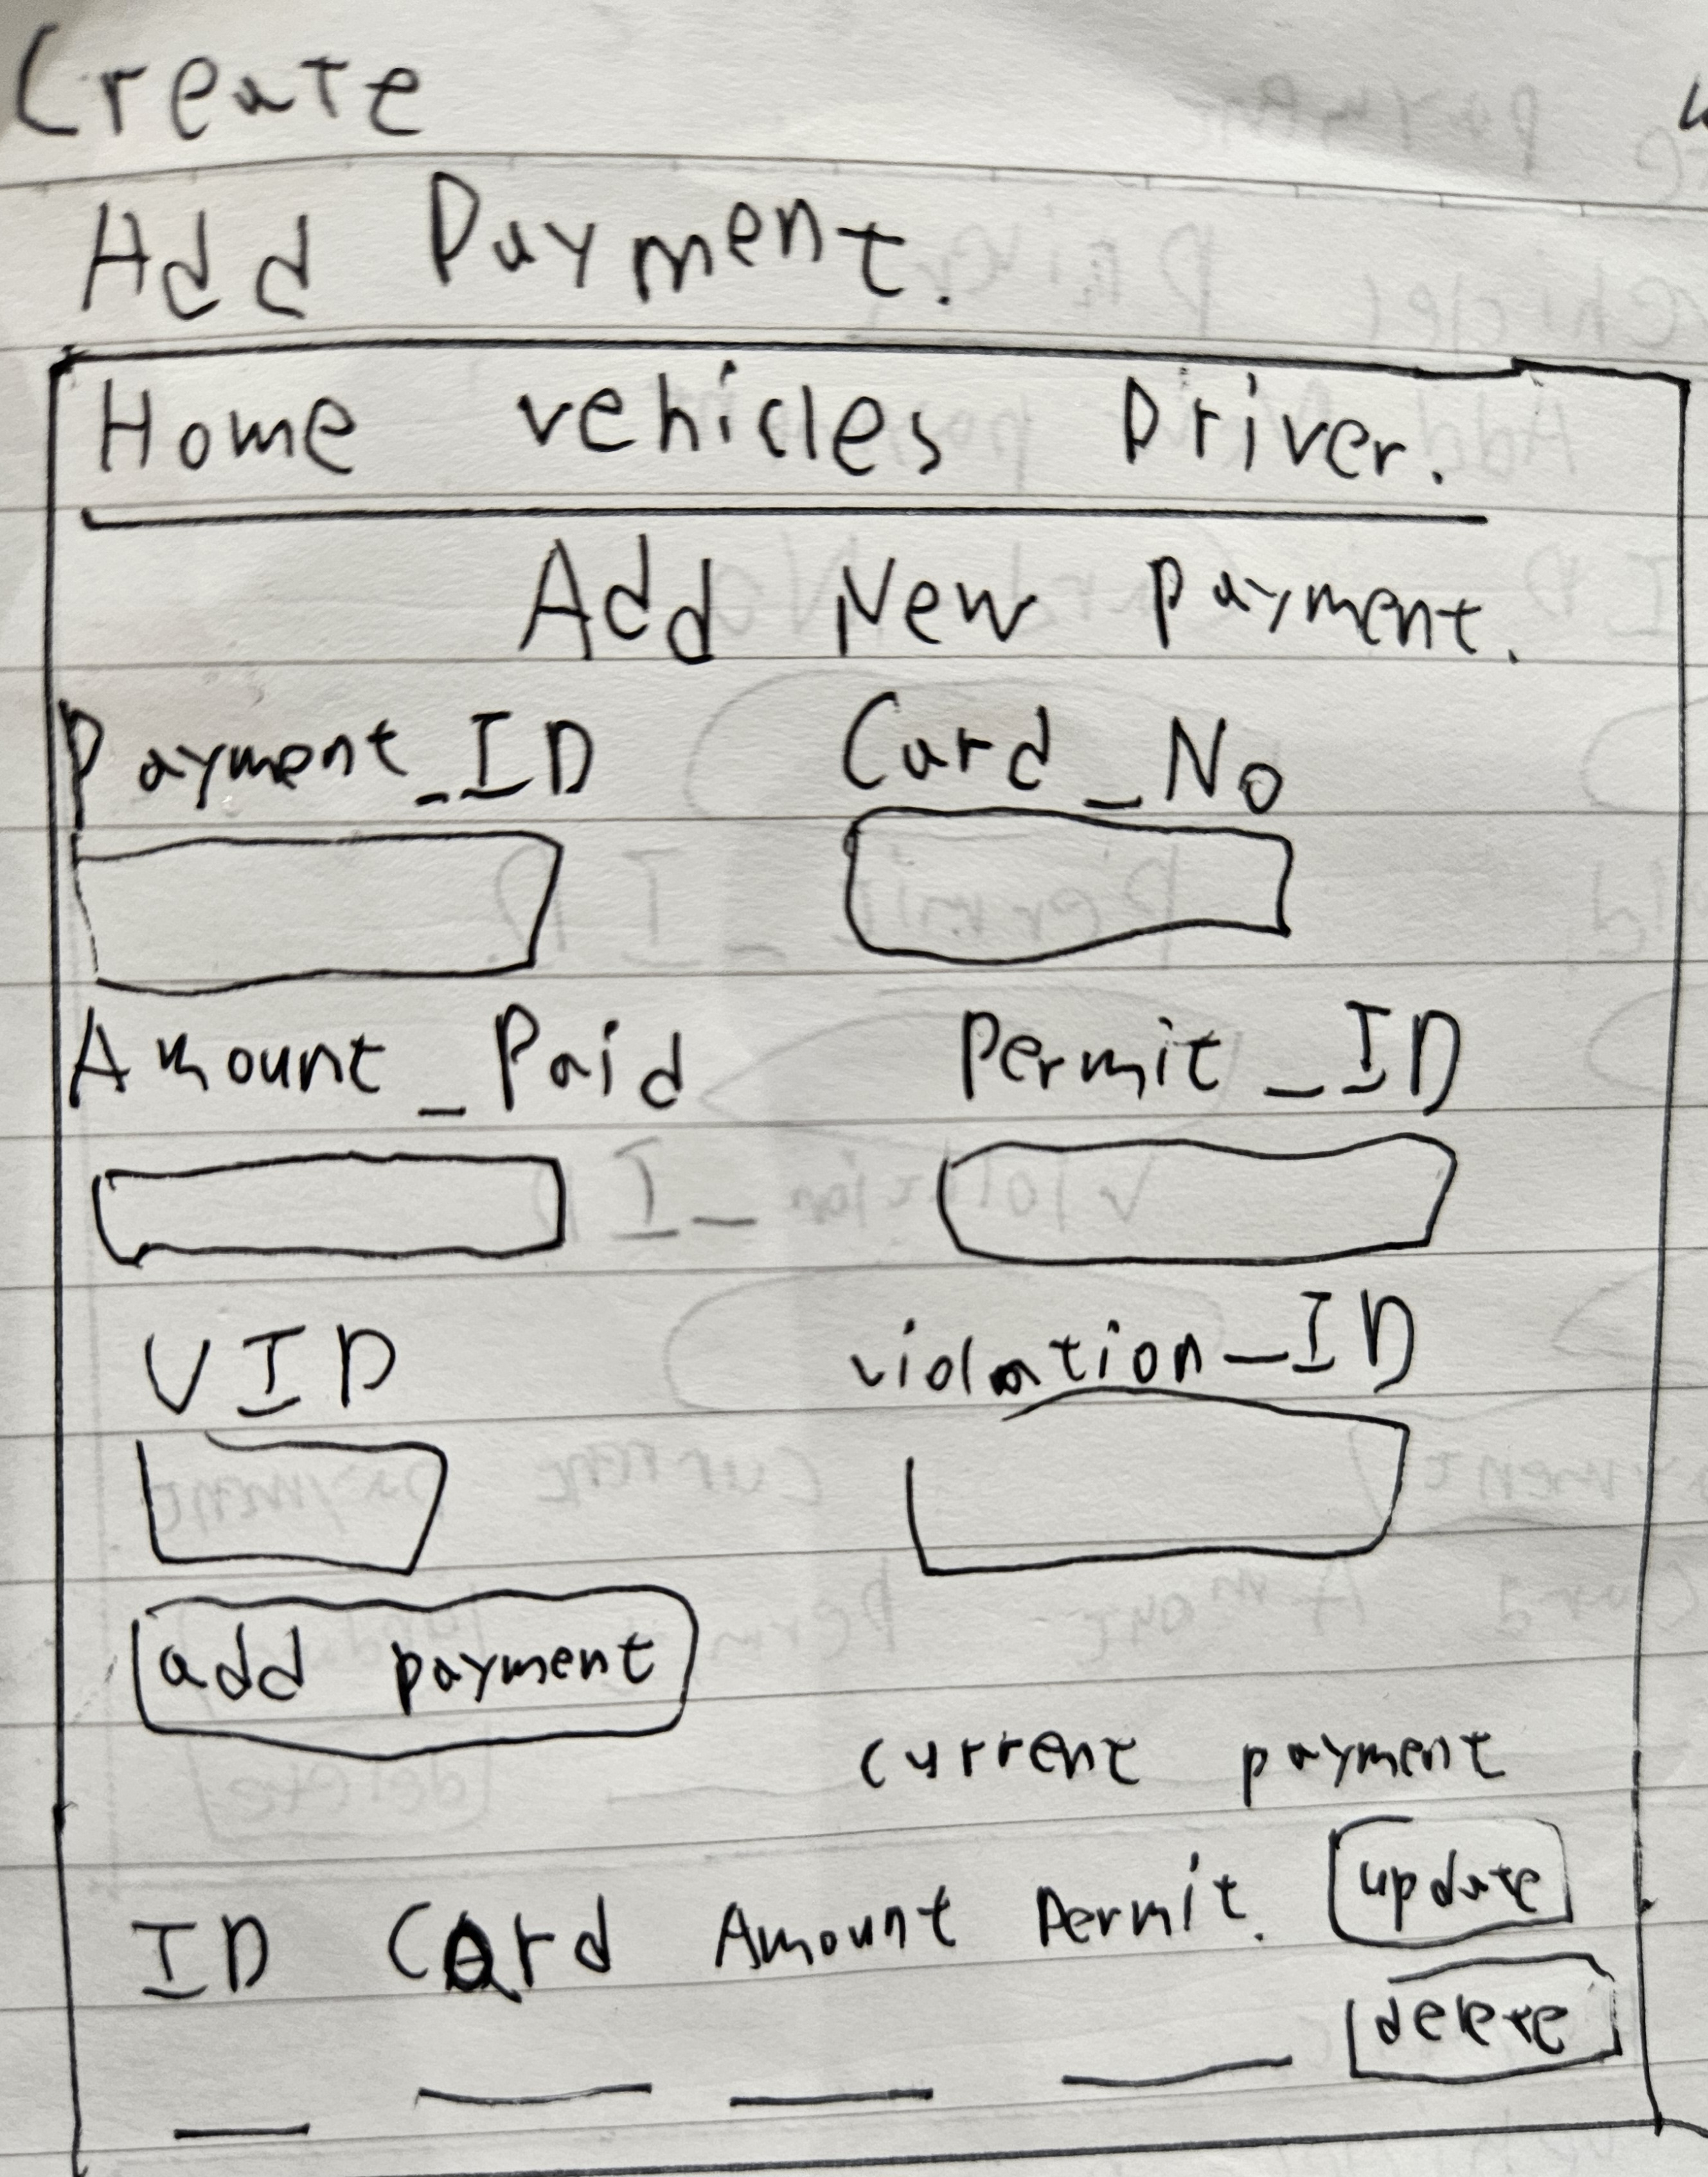 Create
Add Payment.
Home vehicles Driver.
Add New Payment.
Payment_ID Card_No
Amount_Paid Permit_ID
VID violation_ID
add payment
current payment
ID Card Amount Permit. update
delete